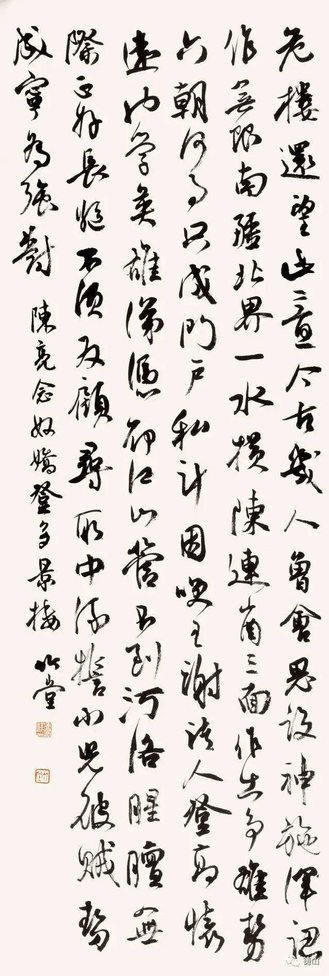 危樓還望此意今古幾人曾會鬼設神施渾認
作無限南疆北界一水橫陳連崗三面作出爭雄勢
六朝何事只成門戶私計因笑王謝諸人登高懷
遠也學英雄涕憑卻江山管不到河洛腥膻無
際正好長驅不須反顧尋取中流誓小兒破賊勢
成寧為強對 陳亮念奴嬌登多景樓 竹堂